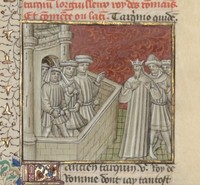 tarquin lorguilleux roy des rommais
Et compte ou sait. Tarquin guide.
ancien tarquin. v. roy de
Romme dont iay tantost